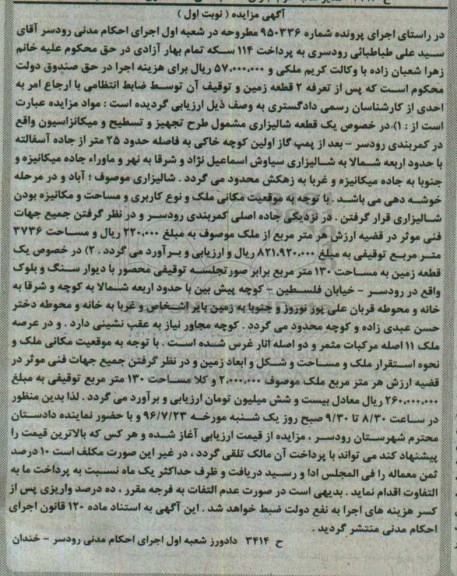 آگهی مزایده ( نوبت اول )
در راستای اجرای پرونده شماره ۹۵۰۳۳۶ مطروحه در شعبه اول اجرای احکام مدنی رودسر آقای
سید علی طباطبائی رودسری به پرداخت ۱۱۴ سکه تمام بهار آزادی در حق محکوم علیه خانم
زهرا شعبان زاده با وکالت کریم ملکی و ۵۷,۰۰۰,۰۰۰ ریال برای هزینه اجرا در حق صندوق دولت
محکوم است که پس از تعرفه ۲ قطعه زمین و توقیف آن توسط ضابط انتظامی با ارجاع امر به
احدی از کارشناسان رسمی دادگستری به وصف ذیل ارزیابی گردیده است : مواد مزایده عبارت
است از : ۱)- در خصوص یک قطعه شالیزاری مشمول طرح تجهیز و تسطیح و میکانزاسیون واقع
در کمربندی رودسر - بعد از پمپ گاز اولین کوچه خاکی به فاصله حدود ۲۵ متر از جاده آسفالته
با حدود اربعه شمالا به شالیزاری سیاوش اسماعیل نژاد و شرقا به نهر و ماوراء جاده میکانیزه و
جنوبا به جاده میکانیزه و غربا به زهکش محدود می گردد . شالیزاری موصوف ؛ آباد و در مرحله
خوشه دهی می باشد . با توجه به موقعیت مکانی ملک و نوع کاربری و مساحت و مکانیزه بودن
شالیزاری قرار گرفتن . در نزدیکی جاده اصلی کمربندی رودسر و در نظر گرفتن جمیع جهات
فنی موثر در قضیه ارزش هر متر مربع از ملک موصوف به مبلغ ۲۲۰,۰۰۰ ریال و مساحت ۳۷۳۶
متر مربع توقیفی به مبلغ ۸۲۱,۹۲۰,۰۰۰ ریال و ارزیابی و برآورد می گردد . ۲) در خصوص یک
قطعه زمین به مساحت ۱۳۰ متر مربع برابر صورتجلسه توقیفی محصور با دیوار سنگ و بلوک
واقع در رودسر - خیابان فلسطین - کوچه پیش بین با حدود اربعه شمالا به کوچه و شرقا به
خانه و محوطه قربان علی پور نوروز و جنوبا به زمین بایر اشخاص و غربا به خانه و محوطه دختر
حسن عبدی زاده و کوچه محدود می گردد . کوچه مجاور نیاز به عقب نشینی دارد . و در عرصه
ملک ۱۱ اصله مرکبات مثمر و دو اصله انار غرس شده است . با توجه به موقعیت مکانی ملک و
نحوه استقرار ملک و مساحت و شکل و ابعاد زمین و در نظر گرفتن جمیع جهات فنی موثر در
قضیه ارزش هر متر مربع ملک موصوف ۲,۰۰۰,۰۰۰ و کلا مساحت ۱۳۰ متر مربع توقیفی به مبلغ
۲۶۰,۰۰۰,۰۰۰ ریال معادل بیست و شش میلیون تومان ارزیابی و برآورد می گردد . لذا بدین منظور
در ساعت ۸/۳۰ تا ۹/۳۰ صبح روز یک شنبه مورخه ۹۶/۷/۲۳ و با حضور نماینده دادستان
محترم شهرستان رودسر ، مزایده از قیمت ارزیابی آغاز شده و هر کس که بالاترین قیمت را
پیشنهاد کند می تواند با پرداخت آن مالک تلقی گردد ، در غیر این صورت مکلف است ۱۰ درصد
ثمن معماله را فی المجلس ادا و رسید دریافت و ظرف حداکثر یک ماه نسبت به پرداخت ما به
التفاوت اقدام نماید . بدیهی است در صورت عدم التفات به فرجه مقرر ، ده درصد واریزی پس از
کسر هزینه های اجرا به نفع دولت ضبط خواهد شد . این آگهی به استناد ماده ۱۲۰ قانون اجرای
احکام مدنی منتشر گردید .
ح ۳۴۱۴ دادورز شعبه اول اجرای احکام مدنی رودسر - خندان